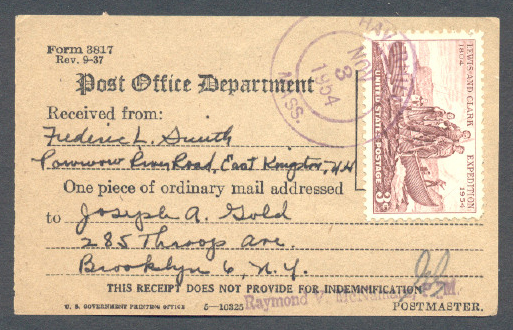 Form 3817
Rev. 9-37
Post Office Department
Received from:
Frederic L. Smith
Powwow River Road, East Kingston, N.H.
One piece of ordinary mail addressed
to Joseph A. Gold
285 Throop Ave.
Brooklyn 6, N.Y.
THIS RECEIPT DOES NOT PROVIDE FOR INDEMNIFICATION
U. S. GOVERNMENT PRINTING OFFICE 5—10325
Raymond V. McNamara, P.M.
POSTMASTER.
NOV
3
1954
MASS.
LEWIS AND CLARK
1804
EXPEDITION
1954
UNITED STATES POSTAGE
3¢